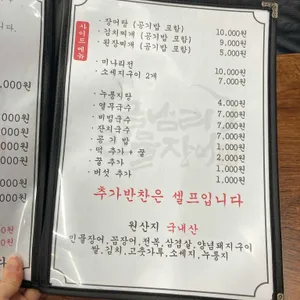 사이드메뉴
· 장어탕 (공기밥 포함) 10,000원
· 김치찌개 (공기밥 포함) 9,000원
· 된장찌개 (공기밥 포함) 5,000원
· 미나리전 10,000원
· 소세지구이 2개 7,000원
· 누룽지탕 4,000원
· 열무국수 7,000원
· 비빔국수 7,000원
· 잔치국수 7,000원
· 공기밥 1,000원
· 떡 추가 + 꿀 2,000원
· 꿀 추가 1,000원
· 버섯 추가 1,000원
추가반찬은 셀프입니다
원산지 국내산
민물장어, 꼼장어, 전복, 삼겹살, 양념돼지구이
쌀, 김치, 고춧가루, 소세지, 누룽지